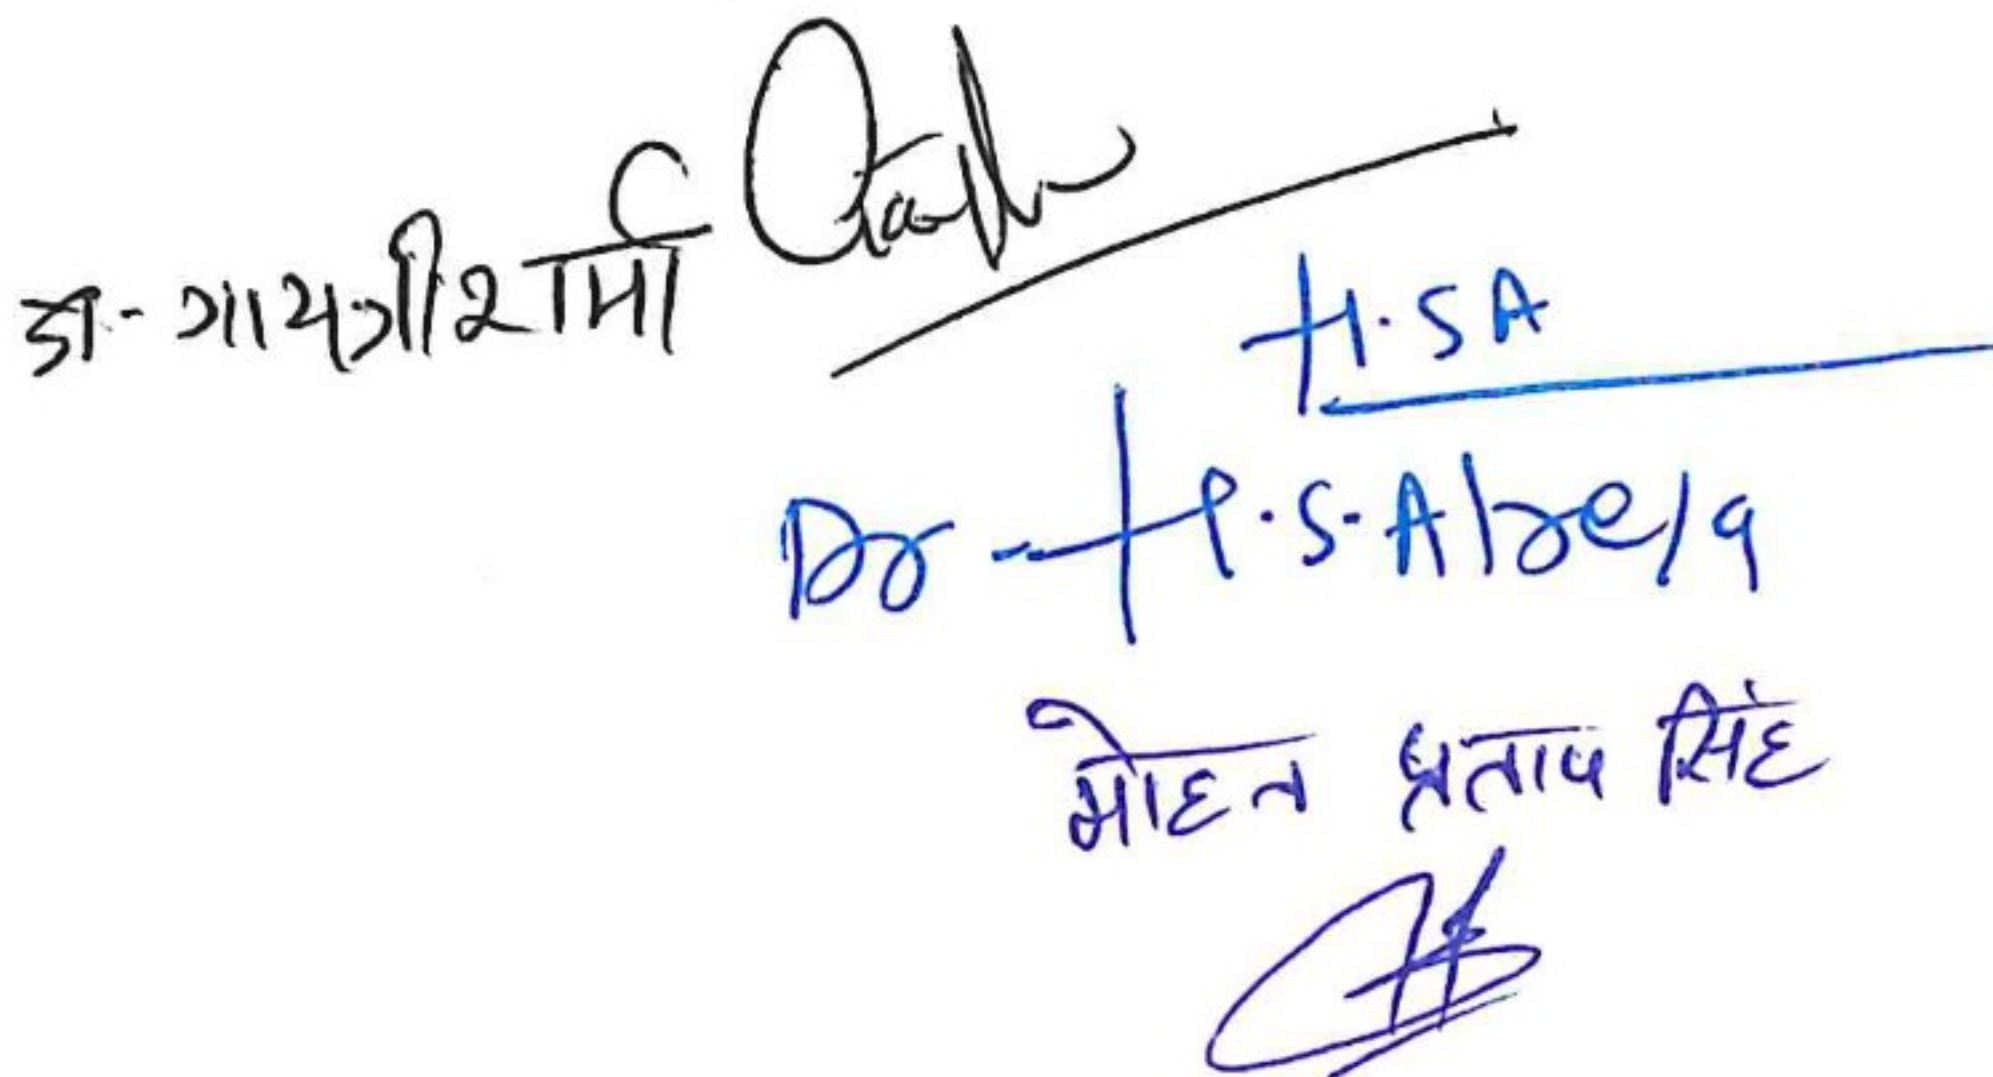 डा- गायत्री शर्मा
H.SA
Dr H.S.Alrela
मोहन प्रताप सिंह